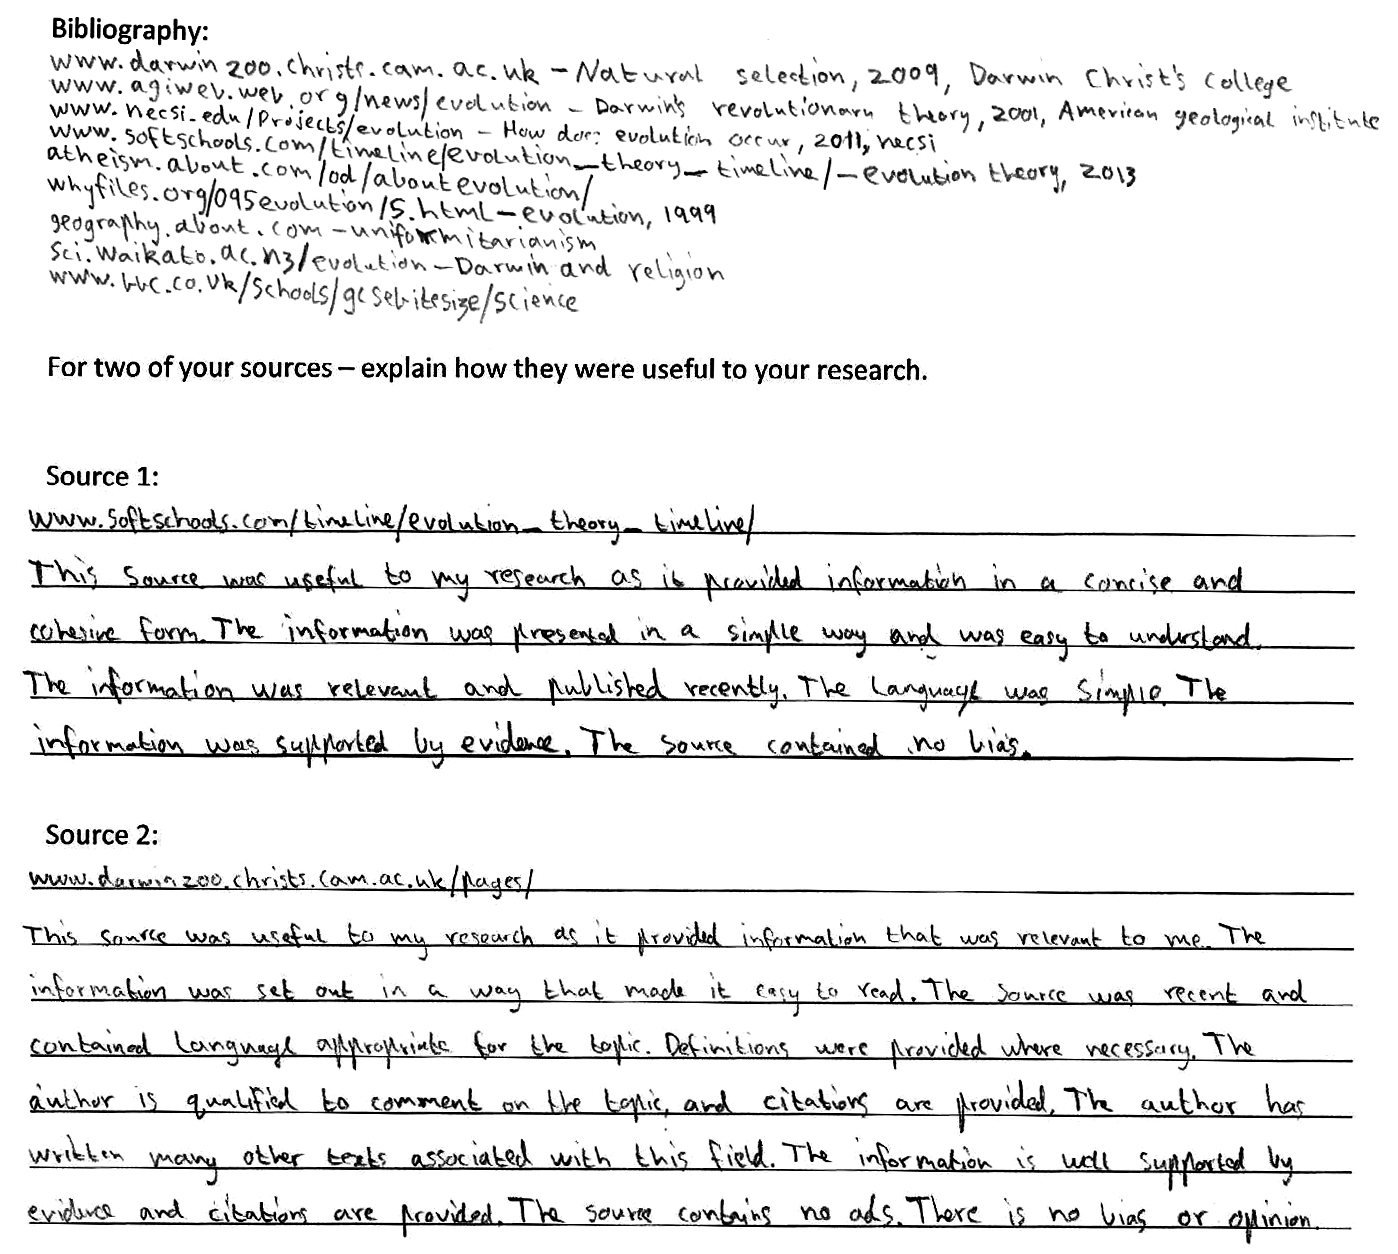 Bibliography:
www.darwin200.christs.cam.ac.uk – Natural selection, 2009, Darwin Christ's College
www.agiweb.web.org/news/evolution – Darwin's revolutionary theory, 2001, American geological institute
www.necsi.edu/Projects/evolution – How does evolution occur, 2011, necsi
www.softschools.com/timeline/evolution_theory_timeline/ – evolution theory, 2013
atheism.about.com/od/aboutevolution/
whyfiles.org/095evolution/5.html – evolution, 1999
geography.about.com – uniformitarianism
sci.waikato.ac.nz/evolution – Darwin and religion
www.bbc.co.uk/schools/gcsebitesize/science
For two of your sources – explain how they were useful to your research.
Source 1:
www.softschools.com/timeline/evolution_theory_timeline/
This source was useful to my research as it provided information in a concise and
cohesive form. The information was presented in a simple way and was easy to understand.
The information was relevant and published recently. The language was simple. The
information was supported by evidence. The source contained no bias.
Source 2:
www.darwin200.christs.cam.ac.uk/pages/
This source was useful to my research as it provided information that was relevant to me. The
information was set out in a way that made it easy to read. The source was recent and
contained language appropriate for the topic. Definitions were provided where necessary. The
author is qualified to comment on the topic, and citations are provided. The author has
written many other texts associated with this field. The information is well supported by
evidence and citations are provided. The source contains no ads. There is no bias or opinion.